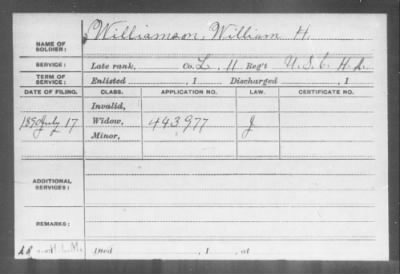 NAME OF SOLDIER: Williamson, William H.
SERVICE: Late rank, Co. L. 11 Reg't U.S.C.H.A.
TERM OF SERVICE: Enlisted , 1 Discharged , 1
DATE OF FILING. CLASS. APPLICATION NO. LAW. CERTIFICATE NO.
Invalid,
1890 July 17 Widow, 443977
Minor,
ADDITIONAL SERVICES:
REMARKS:
Died , 1 , at